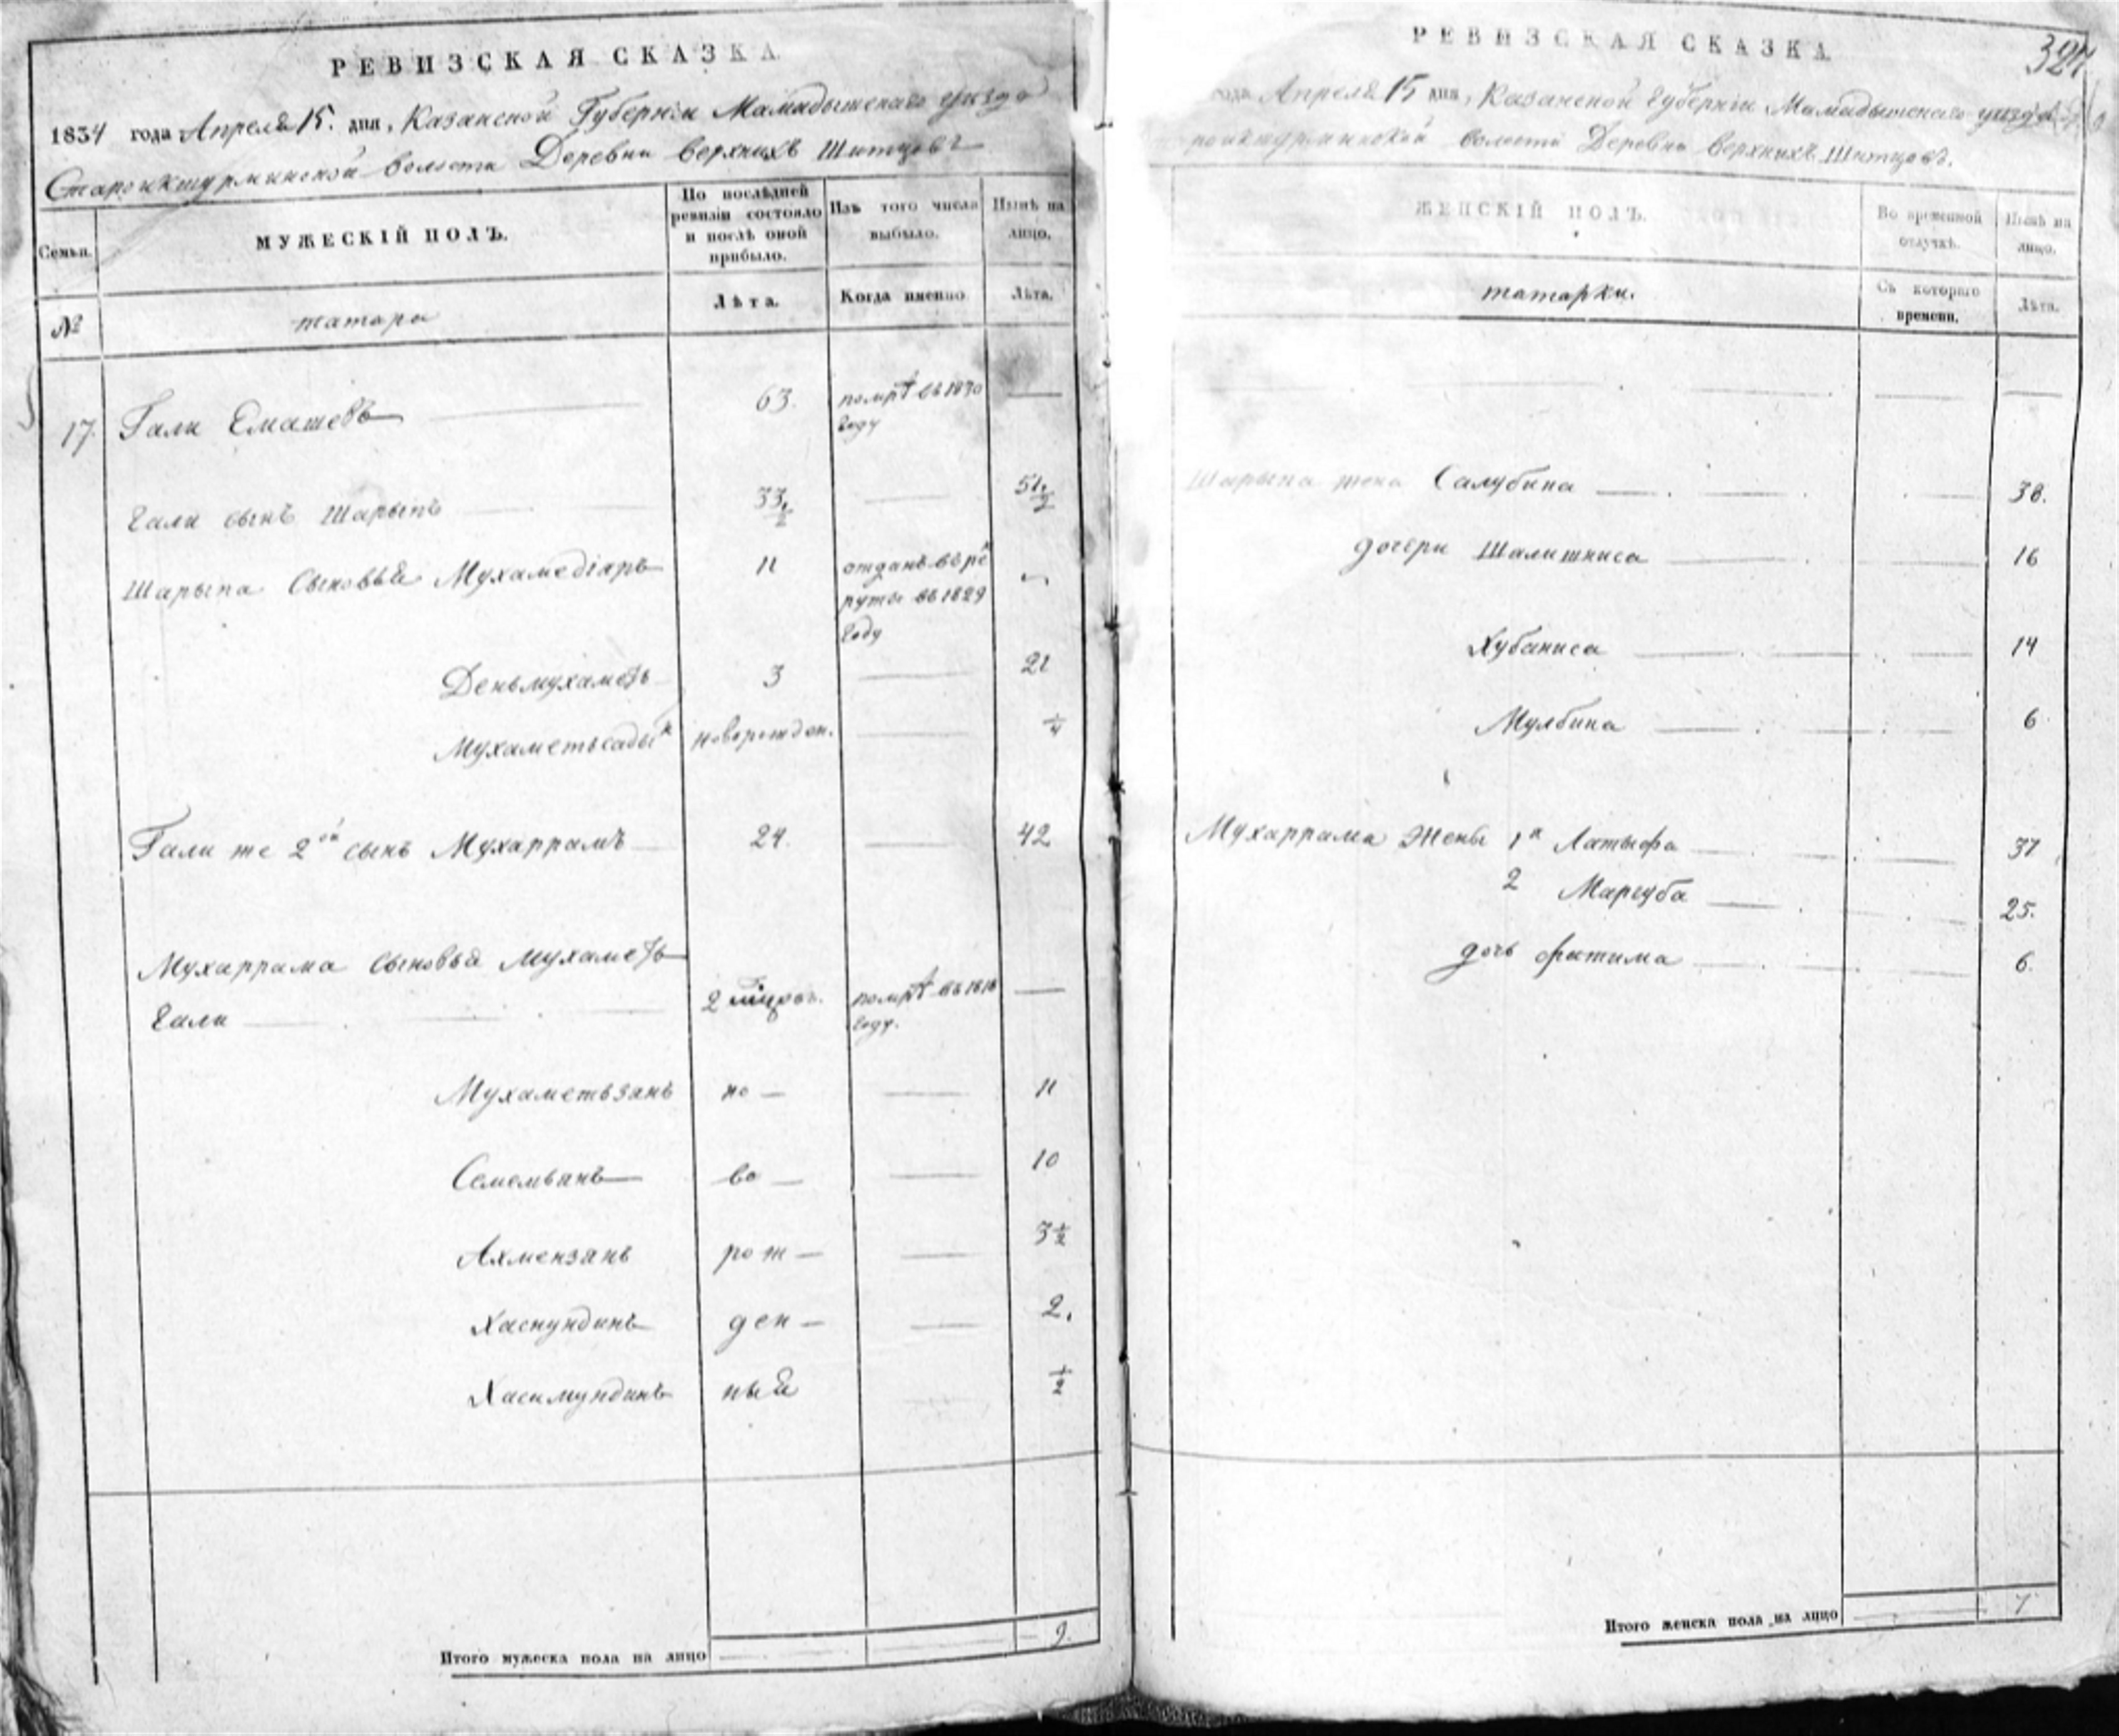 РЕВИЗСКАЯ СКАЗКА
1834 года Апреля 15. дня, Казанской Губерніи Мамадышскаго уезда
Староикшурминской волости Деревни Верхнихъ Шитцовъ
Семьи.
МУЖЕСКІЙ ПОЛЪ.
По послѣдней ревизіи состояло и послѣ оной прибыло.
Изъ того числа выбыло.
Нынѣ на лицо.
№
татара
Лѣта.
Когда именно
Лѣта.
17. Гали Емашевъ 63. помрѣ въ 1830 году —
Гали сынъ Шарыпъ 33 1/2 — 51 1/2
Шарыпа Сыновья Мухамедіаръ 11 отданъ въ рекруты въ 1829 году
Деньмухаметь 3 — 21
Мухаметьсадык новорожден. — 1/4
Гали же 2ой сынъ Мухаррамъ 24. — 42
Мухаррама сыновья Мухаметь
Гали 2 помрѣ въ 1818 году. —
Мухаметьзянь но — — 11
Семемьянь во — — 10
Ахмензянь рож — — 3 1/2
Хаснундинь ден — — 2.
Хасимундинь ный 1/2
Итого мужеска пола на лицо 9.
РЕВИЗСКАЯ СКАЗКА
324
года Апреля 15 дня, Казанской Губерніи Мамадышскаго уезда
роикшурминской волости Деревни Верхнихъ Шитцовъ.
ЖЕНСКІЙ ПОЛЪ.
Во временной отлучкѣ.
Нынѣ на лицо.
татарки.
Съ котораго времени.
Лѣта.
Шарыпа жена Салубина — 38.
дочери Шалишниса — 16
Хубаниса — 14
Мулбина — 6
Мухаррама Жены 1я Латыфа — 37
2 Маргуба — 25.
дочь Фатима — 6.
Итого женска пола на лицо 7